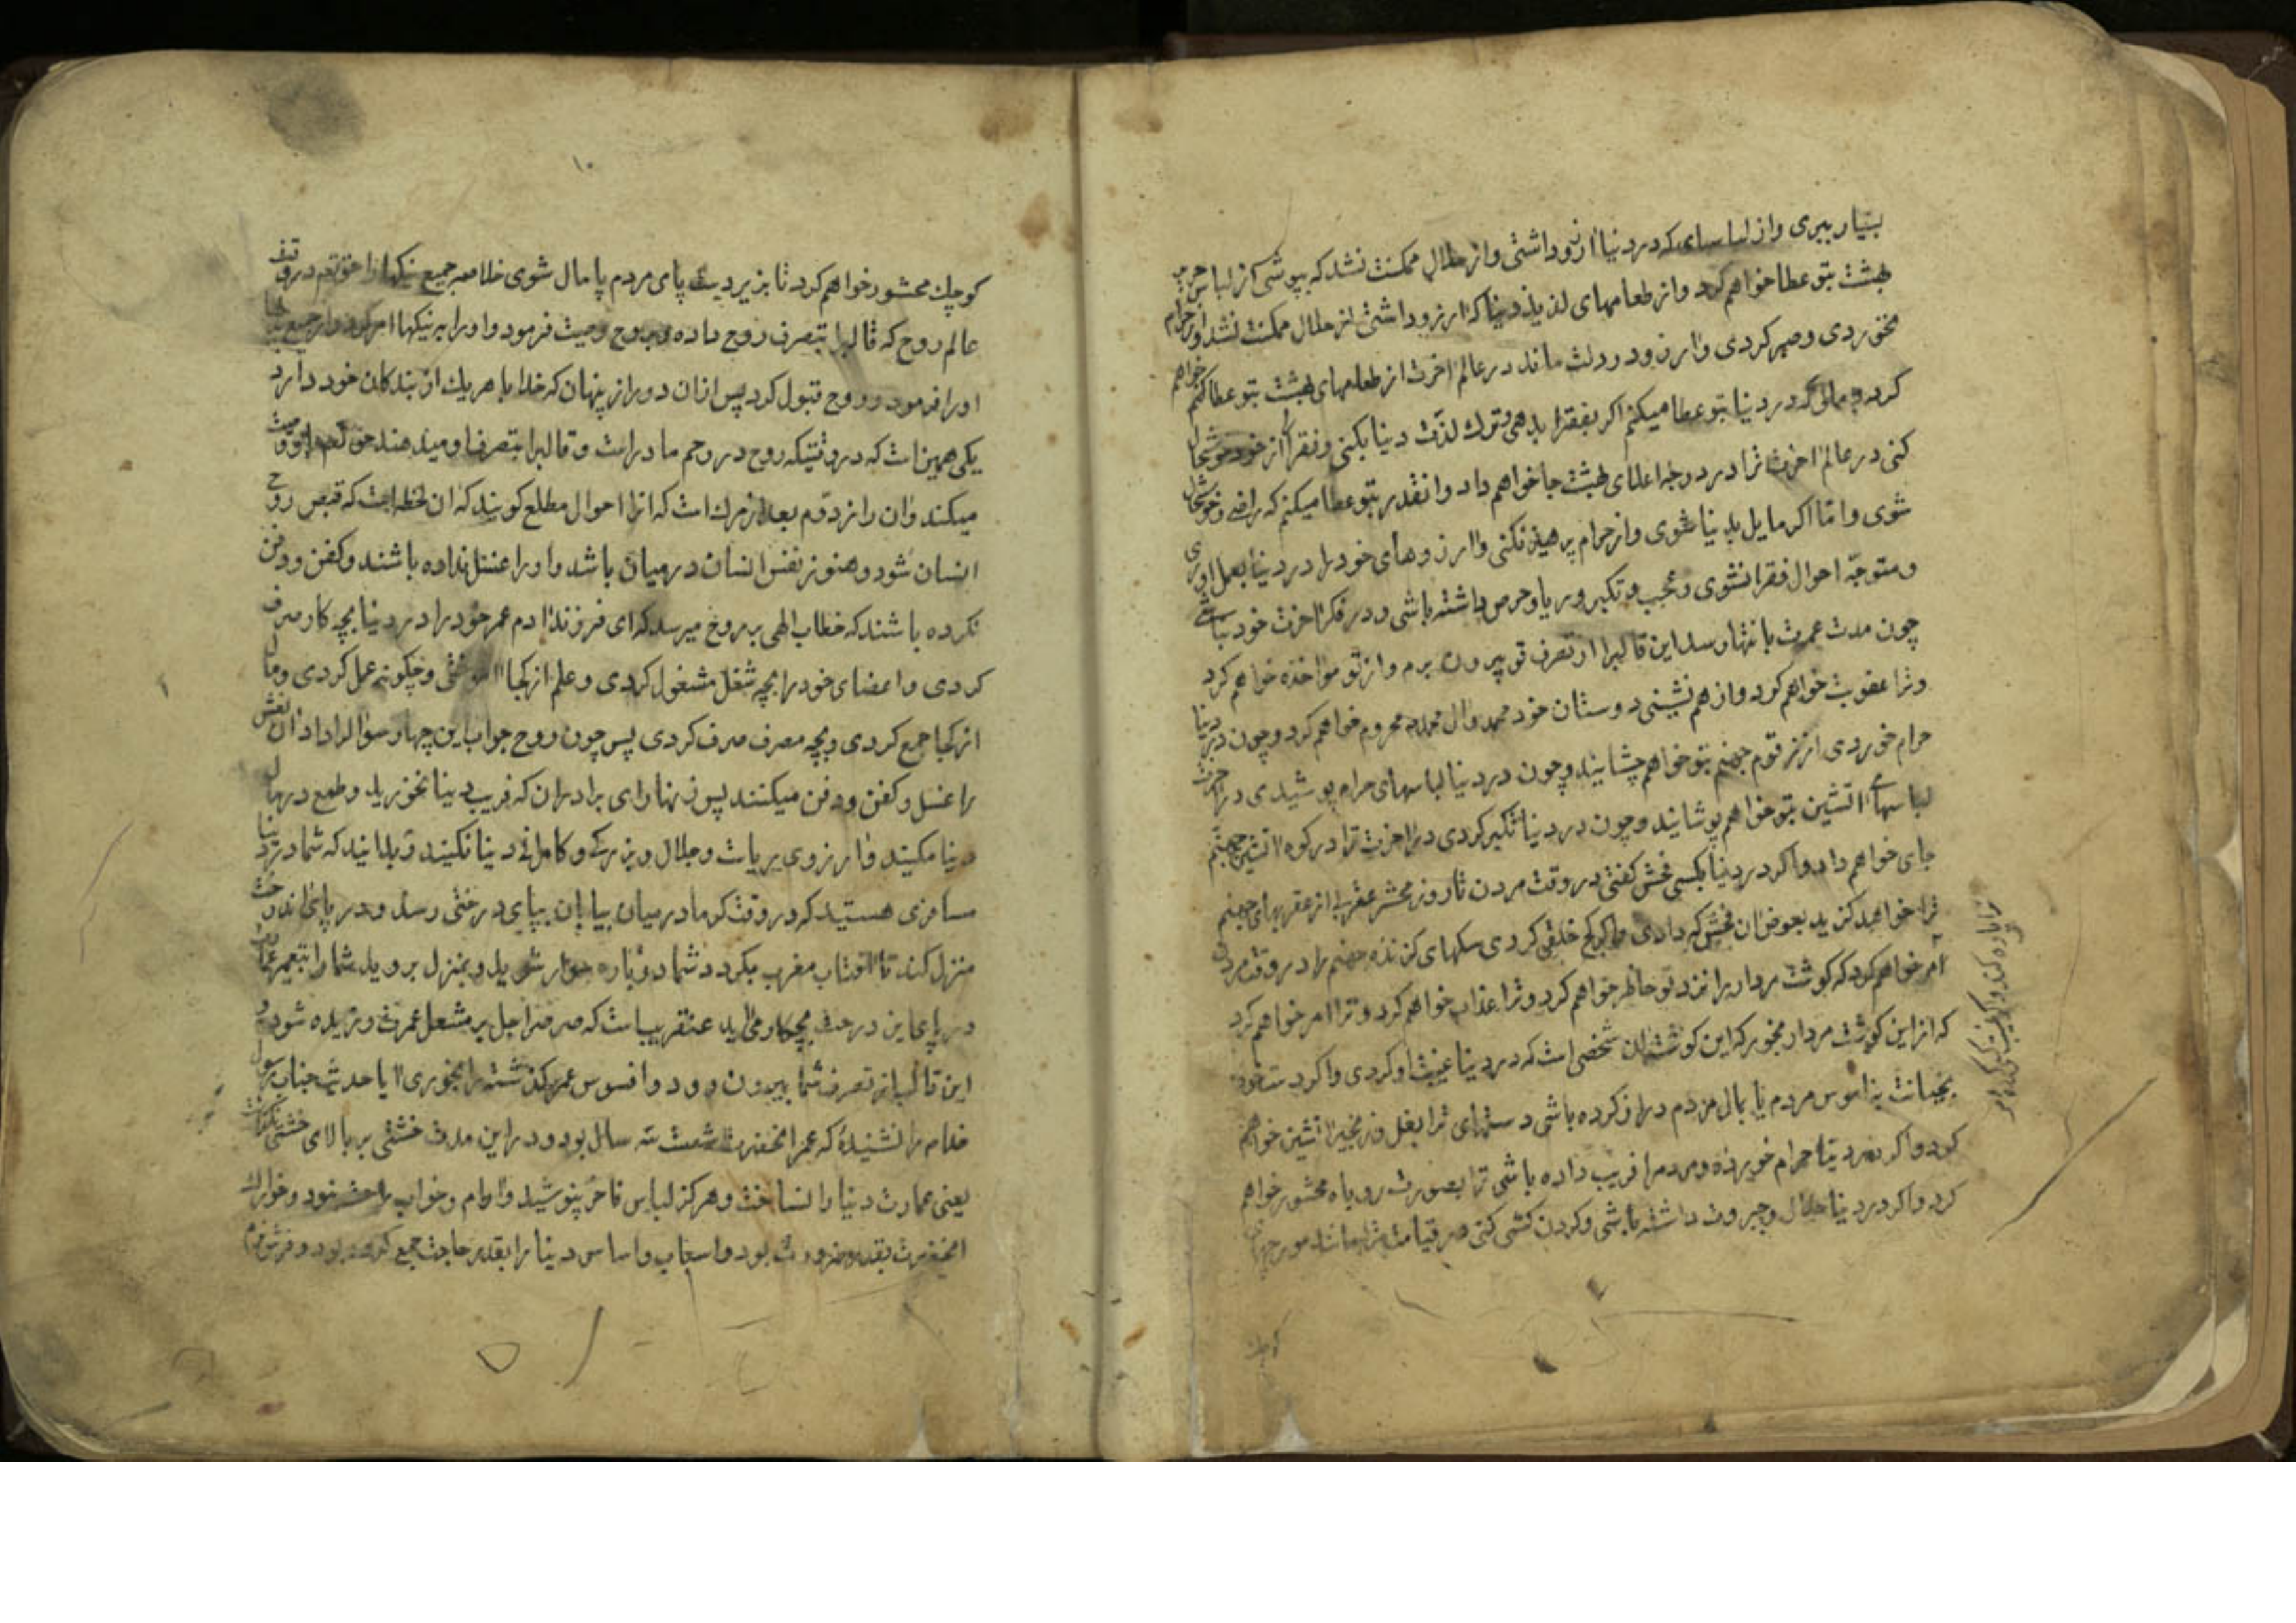 بسیار ببری و از لباسهای که در دنیا ارزو داشتی و از حلال ممکنت نشد که بپوشی که از لباس حریر
بهشت بتو عطا خواهم کرد و از طعامهای لذیذ دنیا که ارزو داشتی از حلال ممکنت نشد و از حرام
نخوردی و صبر کردی و ارزو در دلت ماند در عالم اخرت از طعامهای بهشت بتو عطا خواهم
کرد و مالی که در دنیا بتو عطا میکنم اکر بفقرا بدهی و ترک لذت دنیا بکنی و فقرا را از خود خوشحال
کنی در عالم اخرت ترا در درجه اعلای بهشت جا خواهم داد و انقدر بتو عطا میکنم که راضی و خوشحال
شوی و امّا اکر مایل بدنیا شوی و از حرام پرهیز نکنی و ارزوهای خود را در دنیا بعمل اوری
و متوجّه احوال فقرا نشوی و عجب و تکبر و ریا و حرص داشته باشی و در فکر اخرت خود نباشی
چون مدت عمرت بانتها رسد این قالبرا از تصرف تو بیرون برم و از تو مواخذه خواهم کرد
و ترا عقوبت خواهم کرد و از هم نشینی دوستان خود محمد و ال محمد محروم خواهم کرد و چون در دنیا
حرام خوردی از زقوم جهنم بتو خواهم چشانید و چون در دنیا لباسهای حرام پوشیدی در اخرت
لباسهای اتشین بتو خواهم پوشانید و چون در دنیا تکبر کردی در اخرت ترا در کوه اتشین جهنم
جای خواهم داد و اکر در دنیا بکسی فحش کفتی در وقت مردن تا روز محشر عقربی از عقربهای جهنم
ترا خواهد کزید بعوض ان فحش که دادی و اکر کج خلقی کردی سکهای کزنده جهنم را در وقت مردن
امر خواهم کرد که کوشت مردار را نزد تو حاظر خواهم کرد و ترا عذاب خواهم کرد و ترا امر خواهم کرد
که از این کوشت مردار بخور که این کوشت ان شخصی است که در دنیا غیبت او کردی و اکر دست خود
بخیانت بناموس مردم یا بمال مردم دراز کرده باشی دستهای ترا بغل و زنجیر اتشین خواهم
کرد و اکر در دنیا حرام خورده و مردمرا فریب داده باشی ترا بصورت روباه محشور خواهم
کرد و اکر در دنیا جلال و جبروت داشته باشی و کردن کشی کنی در قیامت ترا مانند مورچهای
کوچک
۱۰
کوچک محشور خواهم کرد تا بزیر دست پای مردم پامال شوی خلاصه جمیع نیکها را حق تعم در وقت
عالم روح که قالبرا بتصرف روح داده و بروح وصیت فرمود و اورا به نیکها امر کرد و از جمیع
اورا فرمود و روح قبول کرد پس ازان دو راز پنهان که خدا با هریک از بندکان خود دارد
یکی همین است که در وقتیکه روح در رحم مادر است و قالبرا بتصرف او میدهند حق تعم اورا وصیت
میکند و ان راز دوم بعد از مرک است که انرا احوال مطلع کویند که ان لحظه است که قبض روح
انسان شود و هنوز نفس انسان در میان باشد و اورا غسل نداده باشند و کفن و دفن
نکرده باشند که خطاب الهی بروح میرسد که ای فرزند ادم عمر خود را در دنیا بچه کار صرف
کردی و اعضای خود را بچه شغل مشغول کردی و علم از کجا اموختی و چکونه عمل کردی و مال
از کجا جمع کردی و بچه مصرف صرف کردی پس چون روح جواب این چهار سوال را داد ان نعش
را غسل و کفن و دفن میکنند پس زنهار ای برادران که فریب دینا نخورید و طمع در مال
دینا مکنید و ارزوی ریاست و جلال و بزرکی و کامرانی دینا نکنید و بدانید که شما در دنیا
مسافری هستید که در وقت کرما در میان بیابان بپای درختی رسد و در پای ان درخت
منزل کند تا افتاب مغرب بکردد شما دوباره سوار شوید و بمنزل بروید شما را تعمیر
در پای این درخت بچکار می اید عنقریب است که صرصر اجل بر مشعل عمرت وزیده شود و
این قالب از تصرف شما بیرون رود و افسوس عمر کذشته را بخوری ایا حدیث جناب رسول
خدام را نشنیدهٔ که عمر انحضرت شصت سه سال بود و در این مدت خشتی بر بالای خشتی نکذاشت
یعنی عمارت دنیا را نساخت و هرکز لباس فاخر نپوشید و ارام و خواب راحت ننمود و خوراک
انحضرت بقدر ضرورت بود و اسباب و اساس دینا را بقدر حاجت جمع کرده بود و فرش